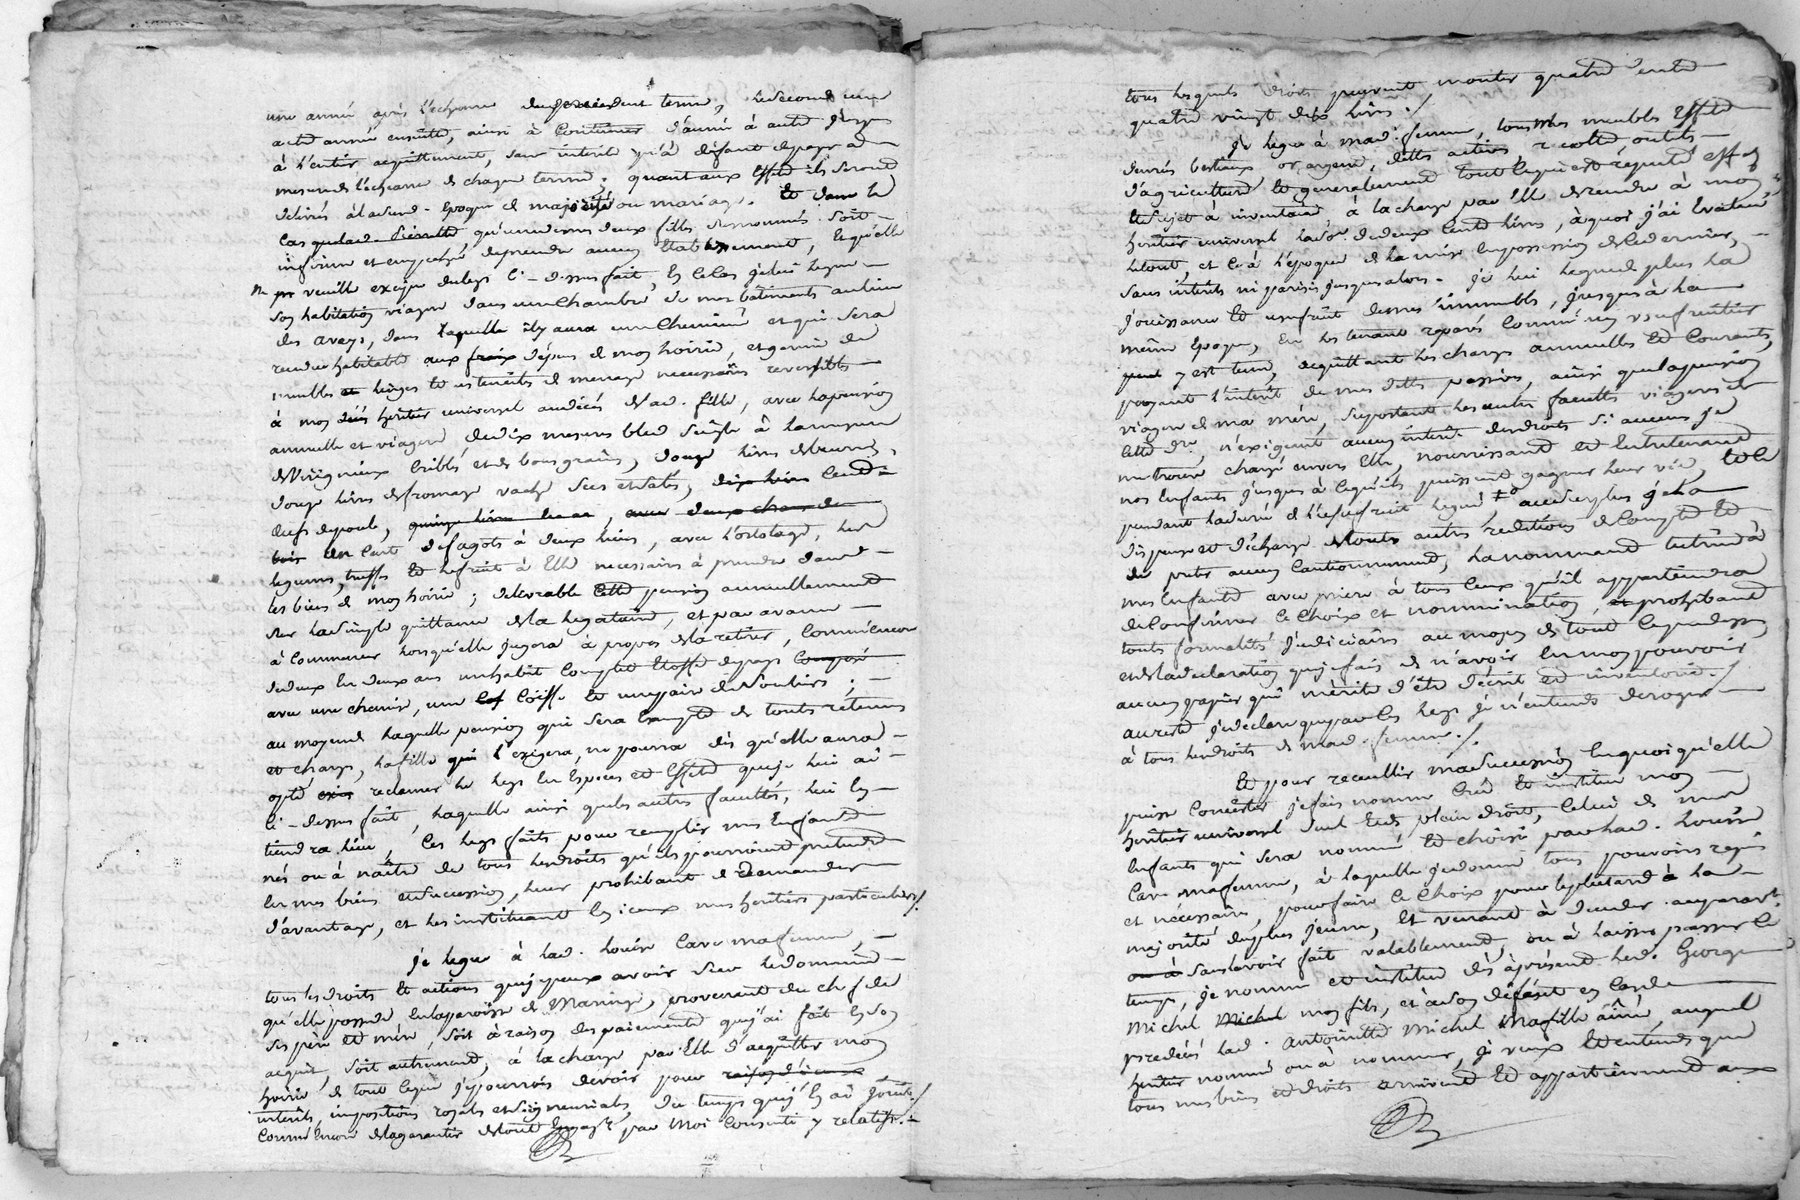 une année après l'echeance du precedent terme, le second une
autre année ensuitte, ainsi à Continuer d'année à autre jusqu'
à l'entier acquittement, sans interets qu'à défaut de payer a
mesure de l'echeance de chaque terme. quant aux Effets ils seront
délivrés à lad. Epoque de majorité ou mariage. Et dans le
Cas que lad. Pierrette qu'une de mes deux filles susnommés soit
infirme et empeché de prendre aucun Etablissement, & qu'elle
ne veuille exiger du legs Ci-dessus fait, En Ce Cas je lui legue
son habitation viagere dans une Chambre de mes bâtiments au lieu
des aveys, dans laquelle il y aura une Cheminée et qui sera
rendue habitable aux frais dépens de mon hoirie, et garnie de
meubles et linges et ustenciles de menage necessaires reversibles
à mon heritier universel au décés de lad. fille, avec la pension
annuelle et viagere de dix mesures bled seigle à la mesure
de Virignieux Criblé et de bon grain, douze livres de beurre,
douze livres de fromage vache secs et salés, dix livres Cent
oeufs de poule, quinze livres de , avec deux chars de
bois un Cent de fagots à deux liens, avec l'ortolage, les
legumes, truffes Et les fruits à Elle necessaires à prendre dans
les biens de mon hoirie; delivrable Cette pension annuellement
sur la simple quittance de la legataire, et par avance
à Commencer lorsqu'elle jugera à propos de la retirer, Comme encore
de deux en deux ans un habit Complet Etoffe de pays Composé
avec une chemise, une Coiffe Et une paire de Souliers;
au moyen de laquelle pension qui sera Exempte de toutes retenues
et charges, la fille qui l'exigera, ne pourra dès qu'elle aura
opté reclamer le legs En Especes et Effets que je lui ai
Ci-dessus fait, laquelle ainsi que les autres facultés, lui en
tiendra lieu, Ces legs faits pour remplir mes Enfants
nés ou à naître de tous les droits qu'ils pourroient pretendre
En mes biens et succession, leur prohibant de demander
d'avantage, et les instituant En iceux mes heritiers particuliers./
Je legue à lad. Louise Cave ma femme,
tous les droits Et actions que je peux avoir sur le domaine
qu'elle possede En la parroisse de Maringe, provenant du chef de
ses père et mère, soit à raison des paiements que j'ai fait En son
acquit, soit autrement, à la charge par Elle d'acquitter mon
hoirie de tout Ce que je pourrois devoir pour raison d'iceux
interêts, impositions royales et seigneuriales, du temps que j'En ai jouit./
Comme Encore de la garantir de tout par Moi Consenti y relatif.
tous lesquels droits peuvent monter quatre cents
quatre vingt dix livres./
Je legue à mad. femme, tous mes meubles Effets
denrés bestiaux or argent, dettes actives recoltes, outils
d'agriculture Et generalement tout Ce qui est reputé effet
Et sujet à inventaire, à la charge par Elle de rendre à mon
heritier universel la de deux Cents livres, à quoi j'ai Evalué
le tout, et Ce à l'epoque de la mise En possession de Ce dernier,
sans interêts ni parisis jusqu'alors. Je lui legue de plus la
jouissance Et usufruit de mes immeubles, jusques à la
même Epoque, En les tenant reparés Comme un usufruitier
y est tenu, acquittant les charges annuelles Et Courantes,
payant l'interêt de mes dettes passives, ainsi que la pension
viagere de ma mère, suportant les autres facultés viageres de
Cette dre, n'exigeant aucun interêt des droits si aucuns je
me trouve chargé envers Elle, nourrissant et Entretenant
nos Enfants jusques à Ce qu'ils puissent gagner leur vie, Et Ce
pendant la durée de l'usufruit legué, au surplus je la
dispense et décharge de toutes autres redditions de Compte Et
de preter aucun Cautionnement, la nommant tutrice à
mes Enfants avec priere à tous Ceux qu'il appartiendra
de Confirmer Ce Choix et nommination, et prohibant
toutes formalités judiciaires au moyen de tout Ce que dessus,
et de la declaration que je fais de n'avoir En mon pouvoir
aucun papier qui mérite d'être décrit et inventorié./
au reste je declare que par Ces legs je n'entends deroger
à tous les droits de mad. femme./.
Et pour recueillir ma succession En quoi qu'elle
puisse Consister je fais nomme Crée Et institue mon
heritier universel seul Et de plein droit, Celui de mes
Enfants qui sera nommé Et choisi par lad. Louise
Cave ma femme, à laquelle je donne tous pouvoirs requis
et nécessaires, pour faire Ce Choix pour le plus tard à la
majorité du plus jeune, Et venant à decider auparavt.
ou à sans l'avoir fait valablement, ou à laisser passer le
temps, je nomme et institue dès à présent led. George
Michel Michel mon fils, et à son défaut en Cas de
predécés lad. Antoinette Michel ma fille aînée, auquel
heritier nommé ou à nommer, je veux Et entends que
tous mes biens et droits arrivent Et appartiennent aux